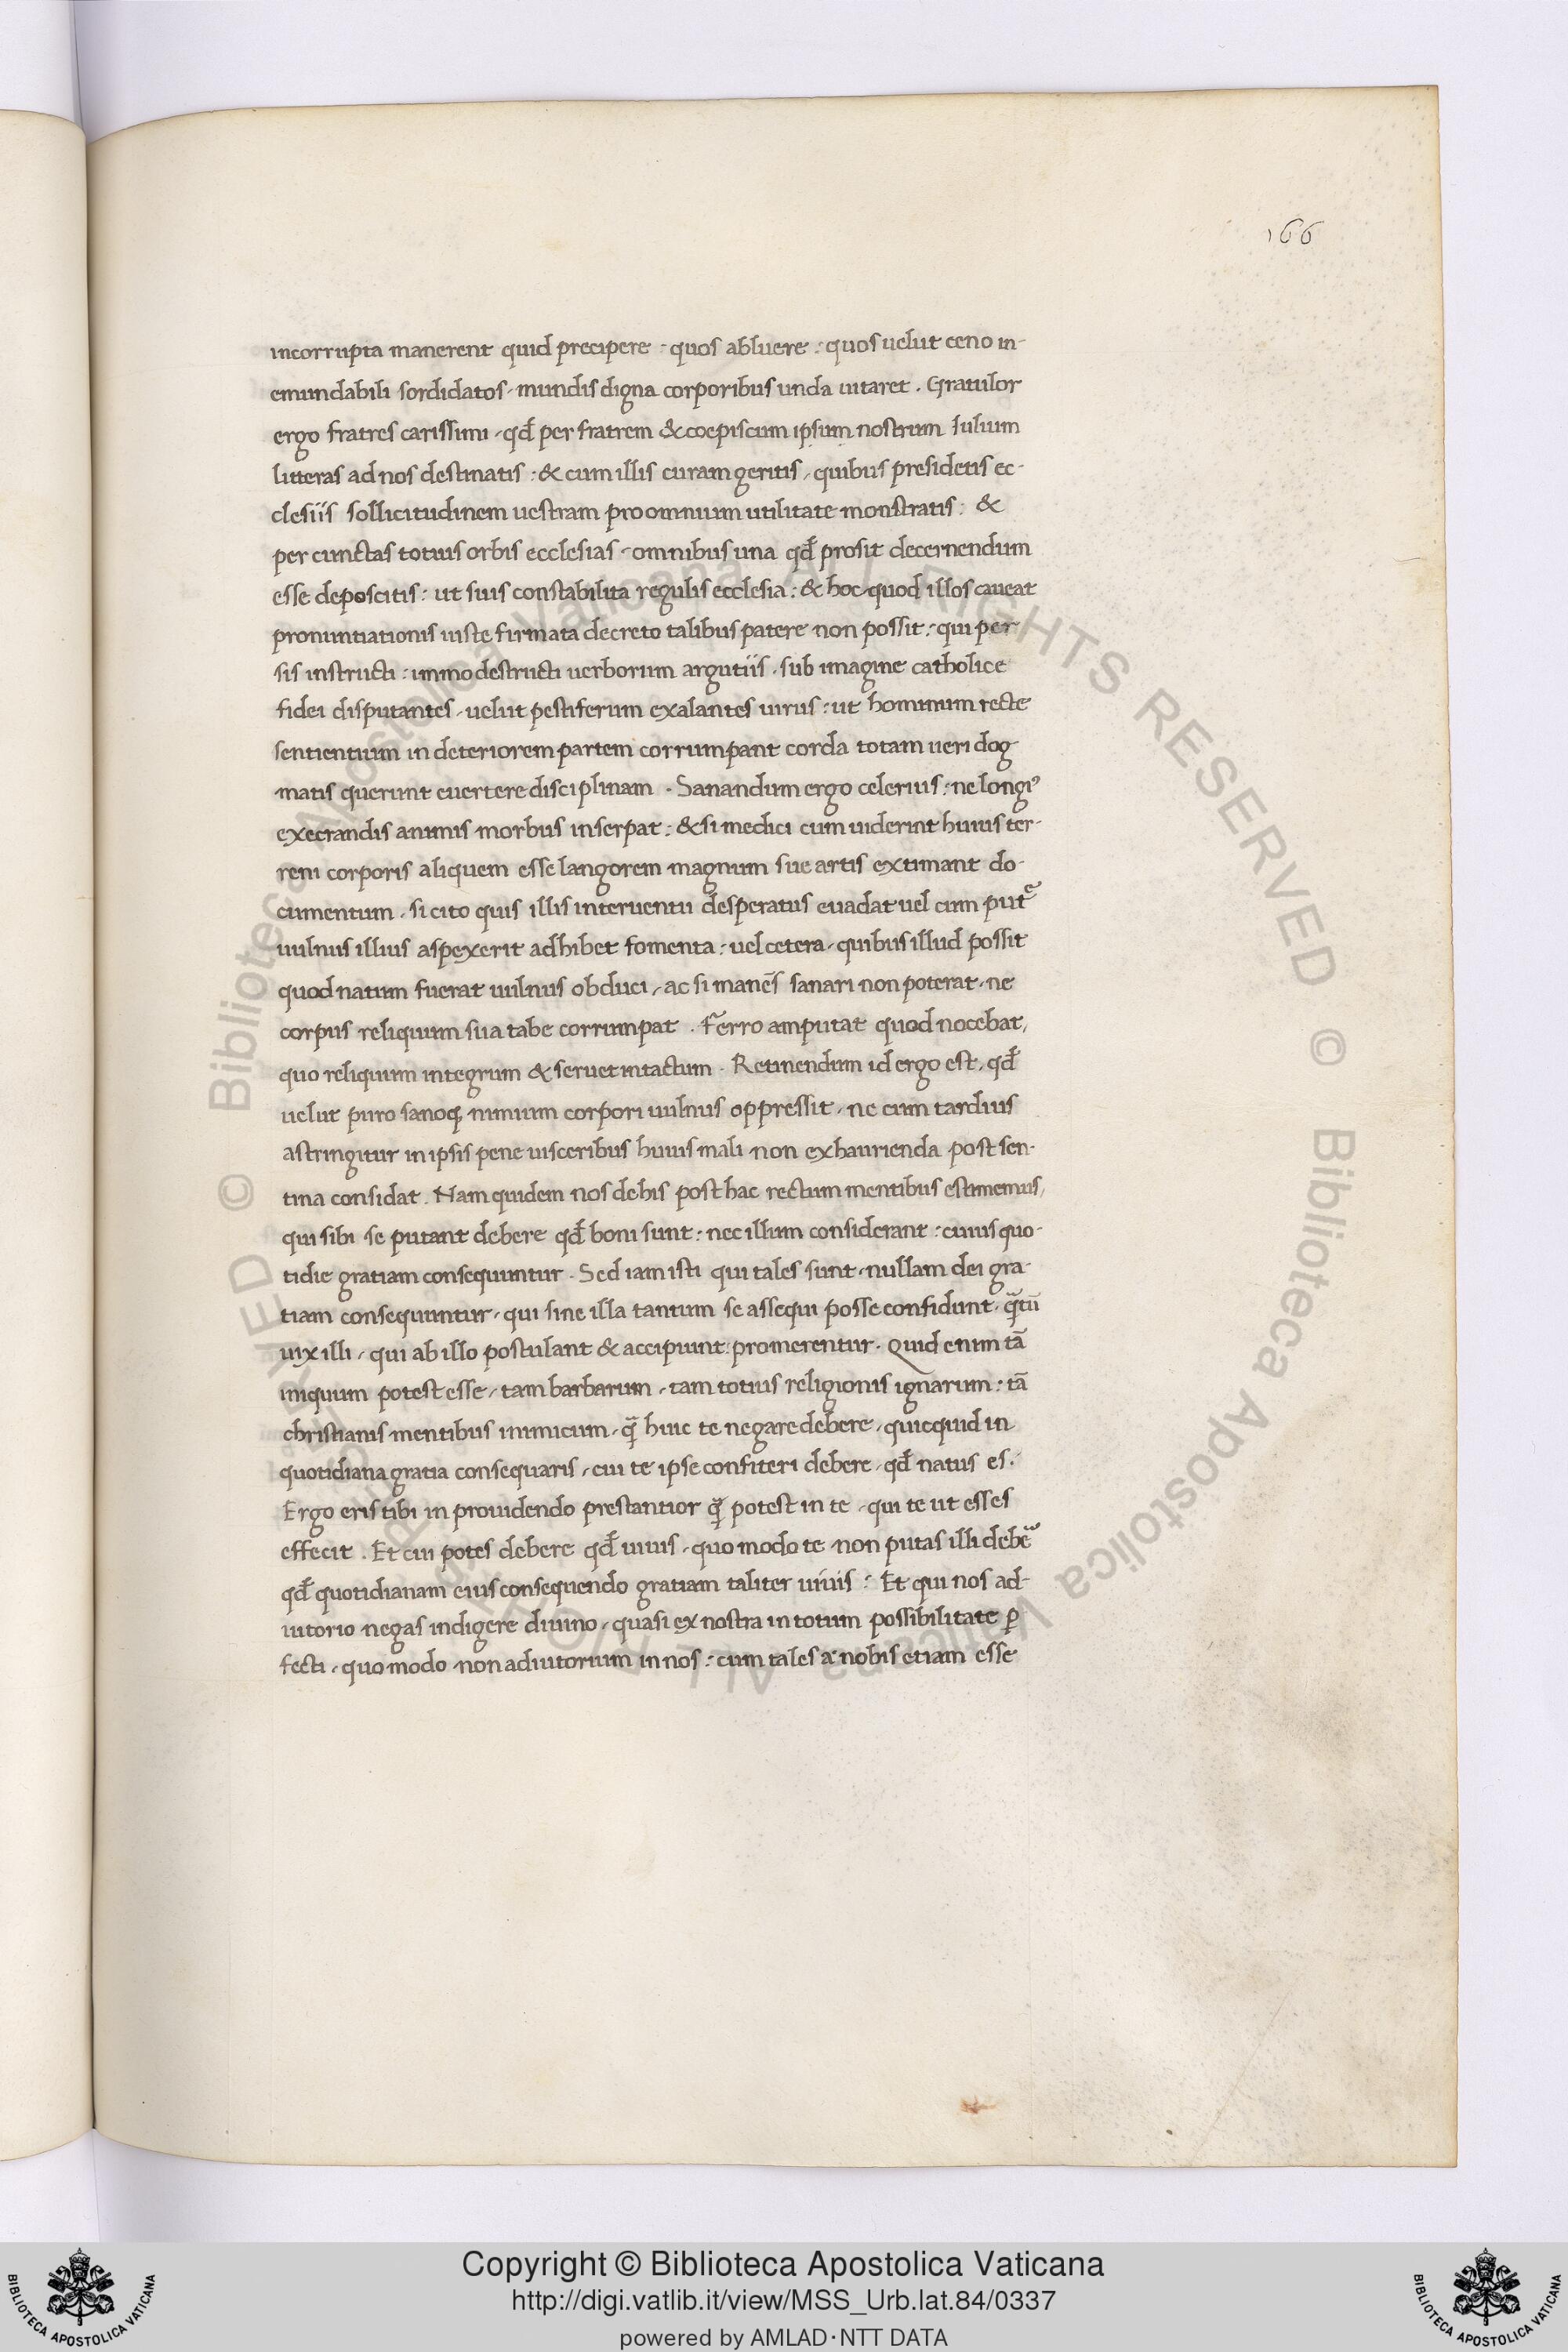 166
incorrupta manerent quid precipere : quos abluere : quos uelut ceno in-
emundabili sordidatos, mundis digna corporibus unda uitaret. Gratulor
ergo fratres carissimi, qd̄ per fratrem & coepiscum ipsum nostrum Iulium
litteras ad nos destinatis : & cum illis curam geritis, quibus presidetis ec-
clesiis sollicitudinem uestram pro omnium utilitate monstratis : &
per cunctas totius orbis ecclesias, omnibus una qd̄ prosit decernendum
esse deposcitis : ut suis constabilita regulis ecclesia : & hoc quod illos caueat
pronuntiationis iuste firmata decreto talibus patere non possit : qui per
sis instructi : immo destructi uerborum argutiis, sub imagine catholice
fidei disputantes, uelut pestiferum exalantes uirus : ut hominum recte
sentientium in deteriorem partem corrumpant corda totam ueri dog
matis querunt euertere disciplinam. Sanandum ergo celerius : ne longi⁹
execrandis animis morbus inserpat : & si medici cum uiderint huius ter-
reni corporis aliquem esse langorem magnum sue artis extimant do-
cumentum, si cito quis illis interuentu desperatus euadat uel cum putr̄e
uulnus illius aspexerit adhibet fomenta : uel cetera, quibus illud possit
quod natum fuerat uulnus obduci, ac si manēs sanari non poterat, ne
corpus reliquum sua tabe corrumpat. Ferro amputat quod nocebat,
quo reliquum integrum & seruet intactum. Retinendum id ergo est, qd̄
uelut puro sanoq; nimium corpori uulnus oppressit, ne cum tardius
astringitur in ipsis pene uisceribus huius mali non exhaurienda post sen-
tina considat. Nam quidem nos de his post hac rectum mentibus estimemus,
qui sibi se putant debere qd̄ boni sunt : nec illum considerant : cuius quo-
tidie gratiam consequuntur. Sed iam isti qui tales sunt, nullam dei gra-
tiam consequuntur, qui sine illa tantum se assequi posse confidunt, q̄tū
uix illi, qui ab illo postulant & accipiunt : promerentur. Quid enim tā
iniquum potest esse, tam barbarum, tam totius religionis ignarum : tā
christianis mentibus inimicum, q̄ huic te negare debere, quicquid in
quotidiana gratia consequaris, cui te ipse confiteri debere, qd̄ natus es.
Ergo eris tibi in prouidendo prestantior q̄ potest in te, qui te ut esses
effecit. Et cui potes debere qd̄ uiuis, quo modo te non putas illi debe͂
qd̄ quotidianam eius consequendo gratiam taliter uiuis : Et qui nos ad-
iutorio negas indigere diuino, quasi ex nostra in totum possibilitate ꝑ
fecti, quo modo non adiutorium in nos : cum tales a nobis etiam esse
© Biblioteca Apostolica Vaticana ALL RIGHTS RESERVED © Biblioteca Apostolica Vaticana ALL RIGHTS RESERVED
Copyright © Biblioteca Apostolica Vaticana
http://digi.vatlib.it/view/MSS_Urb.lat.84/0337
powered by AMLAD·NTT DATA
BIBLIOTECA APOSTOLICA VATICANA
BIBLIOTECA APOSTOLICA VATICANA